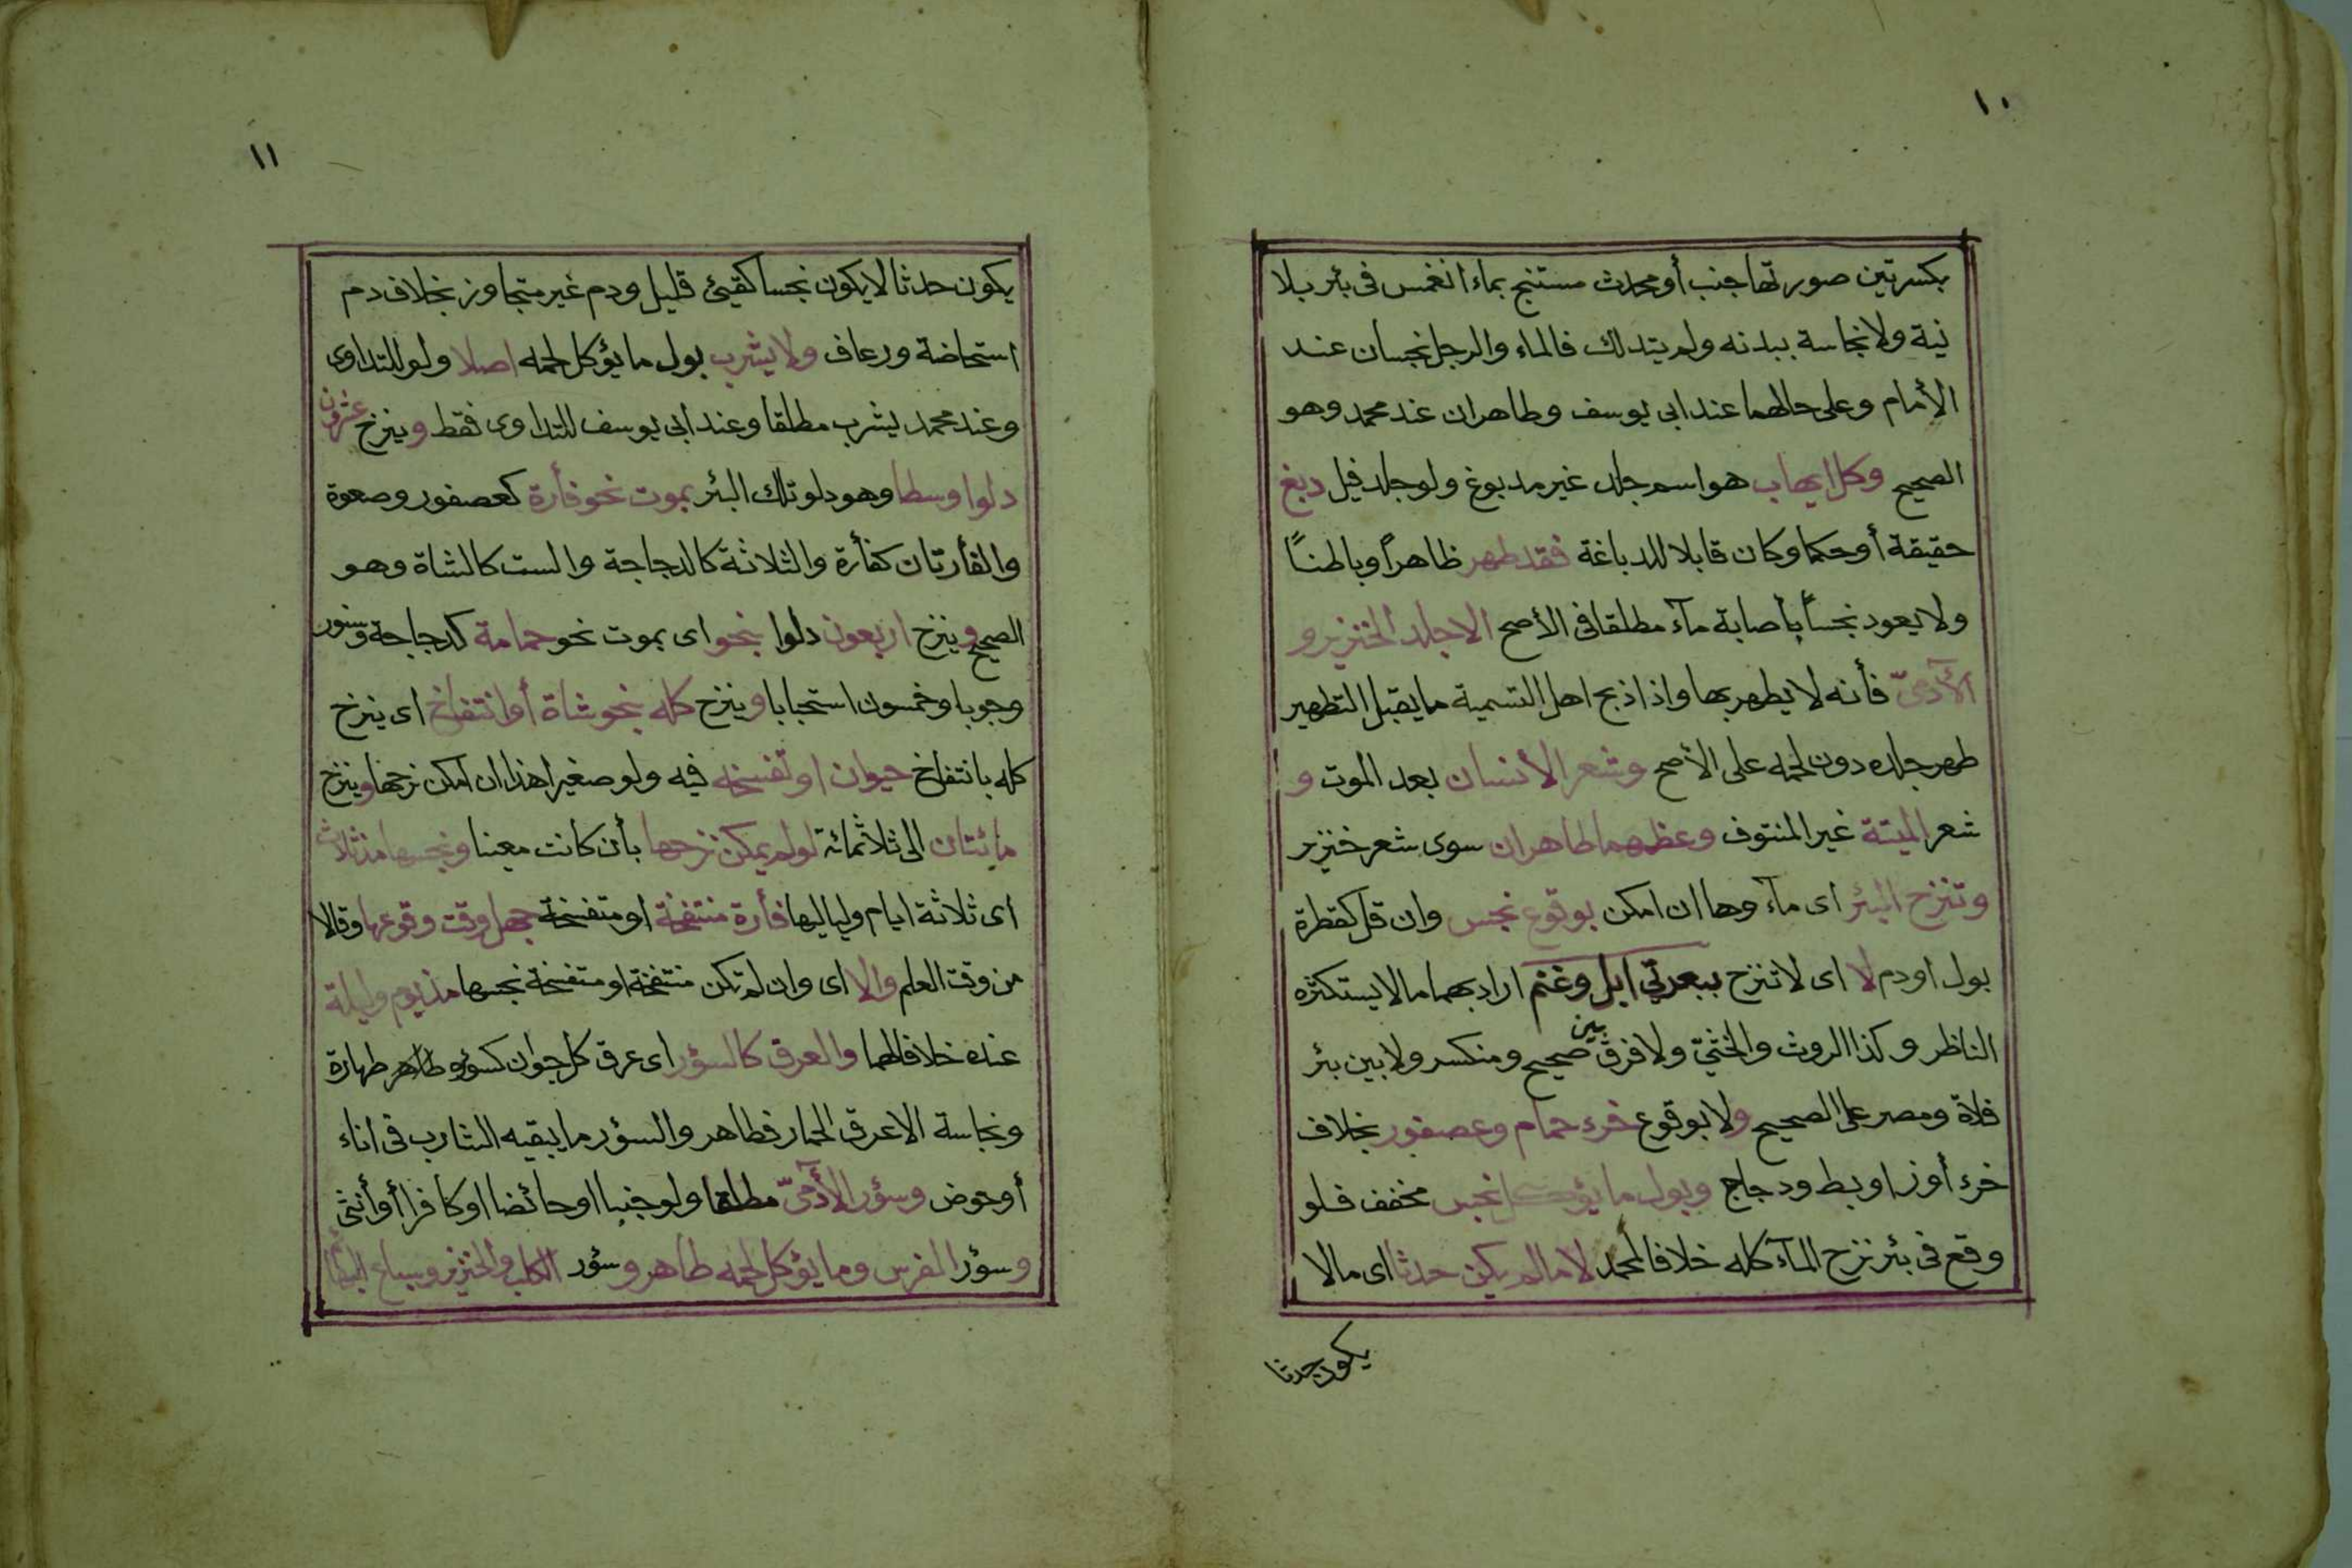 ١٠
بكسرتين صورتها جنب أو محدث مستنج بماء انغمس فى بئر بلا
نية ولا نجاسة ببدنه ولم يتدلك فالماء والرجل نجسان عند
الأمام وعلى حالهما عند ابى يوسف وطاهران عند محمد وهو
الصحيح وكل ايهاب هو اسم جلد غير مدبوغ ولو جلد فيل دبغ
حقيقة أو حكما وكان قابلا للدباغة فقد طهر ظاهراً وباطناً
ولا يعود نجساً بأصابة مآء مطلقا فى الأصح الا جلد الخنزير و
الآدمىّ فأنه لا يطهر بها واذا ذبح اهل التسمية ما يقبل التطهير
طهر جلده دون لحمه على الأصح وشعر الأنسان بعد الموت و
شعر الميتة غير المنتوف وعظمهما طاهران سوى شعر خنزير
وتنزح البئر اى مآء وها ان امكن بوقوع نجس وان قل كقطرة
بول او دم لا اى لا تنزح ببعرتي ابل وغنم اراد بهما ما لا يستكثره
الناظر وكذا الروث والخثيّ ولا فرق بين صحيح ومنكسر ولا بين بئر
فلاة ومصر على الصحيح ولا بوقوع خرء حمام وعصفور بخلاف
خرء أوز او بط ودجاج وبول ما يؤكل نجس مخفف فلو
وقع فى بئر نزح المآء كله خلافا لمحمد لا ما لم يكن حدثا اى مالا
يكون حدثا
١١
يكون حدثا لا يكون نجسا كقيئ قليل ودم غير متجاوز بخلاف دم
استحاضة ورعاف ولا يشرب بول ما يؤكل لحمه اصلا ولو للتداوى
وعند محمد يشرب مطلقا وعند ابى يوسف للتداوى فقط وينزح عشرون
دلوا وسطا وهو دلو تلك البئر بموت نحو فأرة كعصفور وصعوة
والفأرتان كفأرة والثلاثة كالدجاجة والست كالشاة وهو
الصحيح وينزح اربعون دلوا بنحو اى بموت نحو حمامة كدجاجة وسنور
وجوبا وخمسون استحبابا وينزح كله بنحو شاة أو انتفاخ اى ينزح
كله بانتفاخ حيوان او تفسخه فيه ولو صغيرا هذا ان امكن نزحها وينزح
مائتان الى ثلاثمائة لو لم يمكن نزحها بأن كانت معينا وينجسها مذ ثلاث
اى ثلاثة ايام ولياليها فأرة منتفخة او متفسخة جهل وقت وقوعها وقالا
من وقت العلم والا اى وان لم تكن منتفخة او متفسخة نجسها مذ يوم وليلة
عنده خلافا لهما والعرق كالسؤر اى عرق كل حيوان كسؤره طاهر طهارة
ونجاسة الا عرق الحمار فطاهر والسؤر ما يبقيه الشارب فى اناء
أو حوض وسؤر الآدمىّ مطلقا ولو جنبا او حائضا او كافرا أو أنثى
وسؤر الفرس وما يؤكل لحمه طاهر وسؤر الكلب والخنزير وسباع البهائم